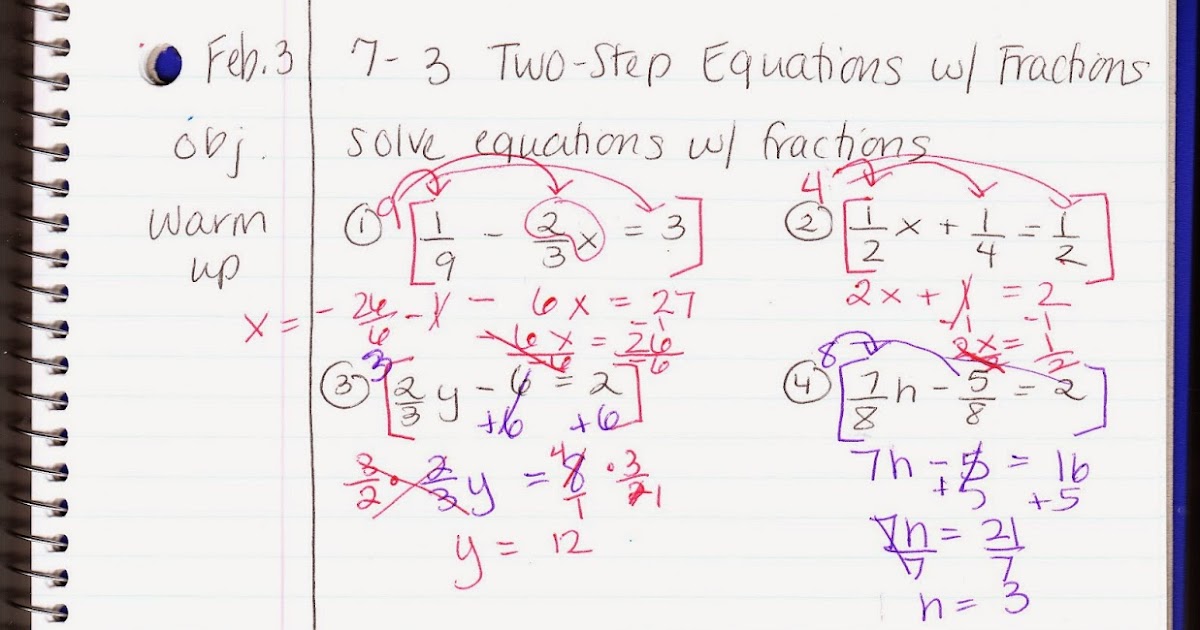 Feb. 3 7-3 Two-Step Equations w/ Fractions
obj. solve equations w/ fractions
warm up
① 9 [1/9 - 2/3 x = 3]
1 - 6x = 27
-1 -1
-6x/-6 = 26/-6
x = -26/6
② 4 [1/2 x + 1/4 = 1/2]
2x + 1 = 2
-1 -1
2x/2 = 1/2
③ 3 [2/3 y - 6 = 2]
+6 +6
3/2 · 2/3 y = 8/1 · 3/2
4 1
y = 12
④ 8 [7/8 n - 5/8 = 2]
7n - 5 = 16
+5 +5
7n/7 = 21/7
n = 3